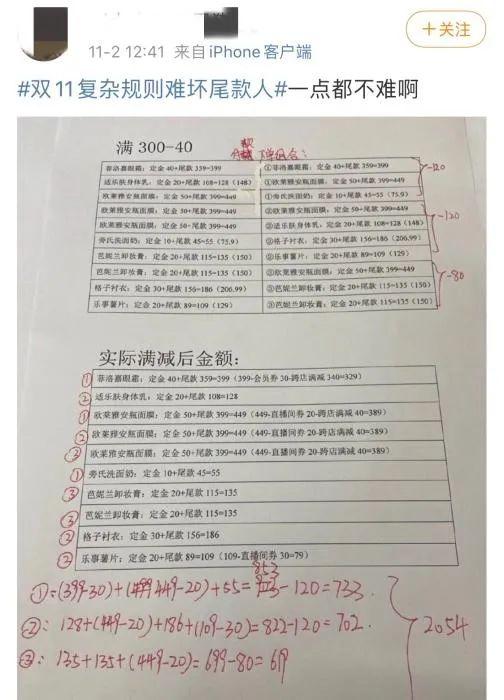 11-2 12:41 来自iPhone客户端
＋关注
#双11复杂规则难坏尾款人#一点都不难啊
满 300-40
分款下单组合：
菲洛嘉眼霜：定金 40+尾款 359=399
①菲洛嘉眼霜：定金 40+尾款 359=399
适乐肤身体乳：定金 20+尾款 108=128（148）
①欧莱雅安瓶面膜：定金 50+尾款 399=449
欧莱雅安瓶面膜：定金 50+尾款 399=449
①旁氏洗面奶：定金 10+尾款 45=55（75.9）
-120
欧莱雅安瓶面膜：定金 50+尾款 399=449
②欧莱雅安瓶面膜：定金 50+尾款 399=449
欧莱雅安瓶面膜：定金 50+尾款 399=449
②适乐肤身体乳：定金 20+尾款 108=128（148）
旁氏洗面奶：定金 10+尾款 45=55（75.9）
②格子衬衣：定金 30+尾款 156=186（206.99）
芭妮兰卸妆膏：定金 20+尾款 115=135（150）
②乐事薯片：定金 20+尾款 89=109（129）
-120
芭妮兰卸妆膏：定金 20+尾款 115=135（150）
③欧莱雅安瓶面膜：定金 50+尾款 399=449
格子衬衣：定金 30+尾款 156=186（206.99）
③芭妮兰卸妆膏：定金 20+尾款 115=135（150）
乐事薯片：定金 20+尾款 89=109（129）
③芭妮兰卸妆膏：定金 20+尾款 115=135（150）
-80
实际满减后金额：
① 菲洛嘉眼霜：定金 40+尾款 359=399（399-会员券 30-跨店满减 340=329）
② 适乐肤身体乳：定金 20+尾款 108=128
① 欧莱雅安瓶面膜：定金 50+尾款 399=449（449-直播间券 20-跨店满减 40=389）
② 欧莱雅安瓶面膜：定金 50+尾款 399=449（449-直播间券 20-跨店满减 40=389）
② 欧莱雅安瓶面膜：定金 50+尾款 399=449（449-直播间券 20-跨店满减 40=389）
① 旁氏洗面奶：定金 10+尾款 45=55
③ 芭妮兰卸妆膏：定金 20+尾款 115=135
③ 芭妮兰卸妆膏：定金 20+尾款 115=135
② 格子衬衣：定金 30+尾款 156=186
② 乐事薯片：定金 20+尾款 89=109（109-直播间券 30=79）
①=(399-30)+(449-20)+55=853-120=733
②：128+(449-20)+186+(109-30)=822-120=702
③：135+135+(449-20)=699-80=619
2054